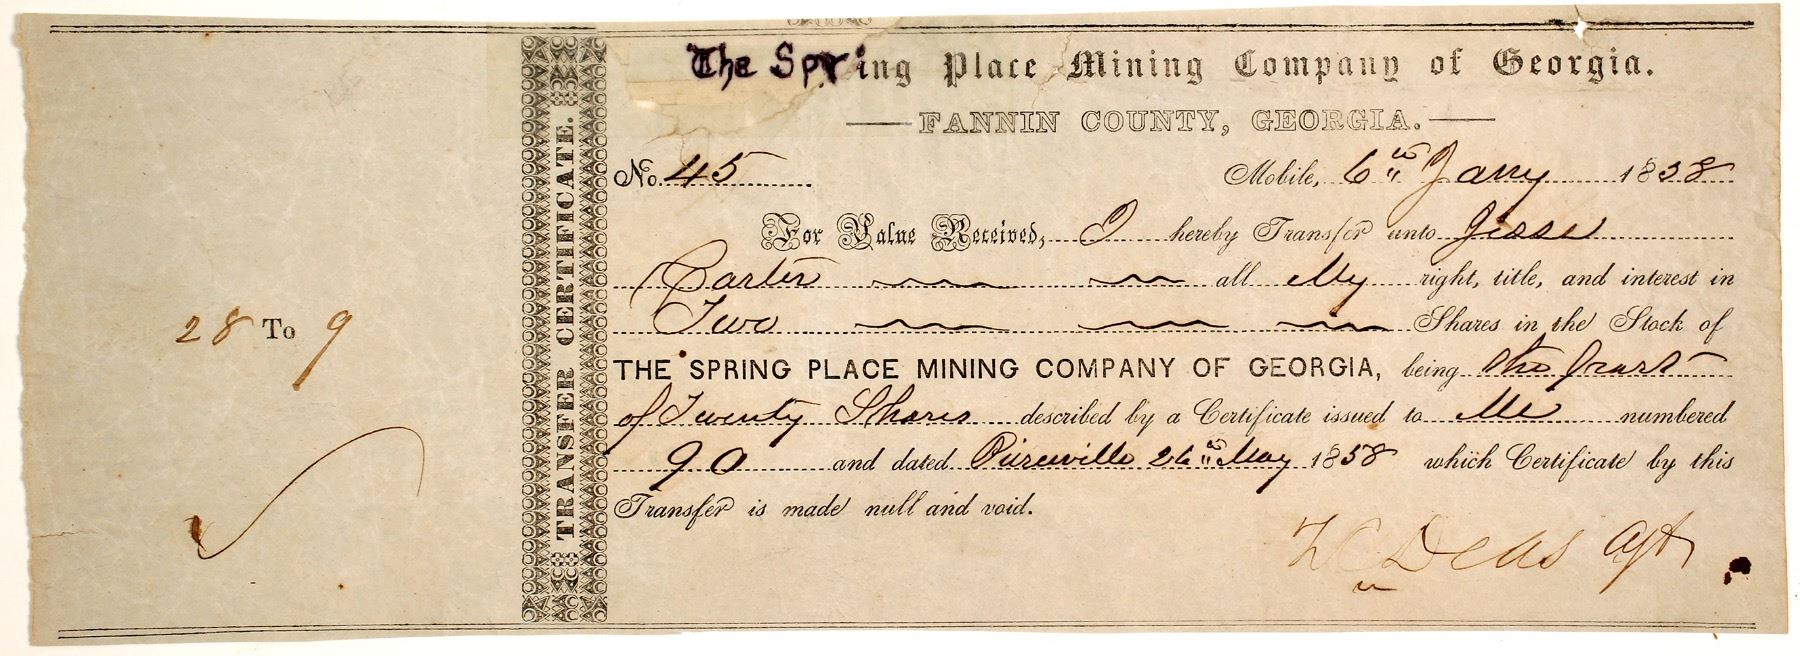 The Spring Place Mining Company of Georgia.
FANNIN COUNTY, GEORGIA.
No. 45 Mobile, 6th Jany 1858
For Value Received, I hereby Transfer unto Jesse
Carter all My right, title, and interest in
Two Shares in the Stock of
THE SPRING PLACE MINING COMPANY OF GEORGIA, being the
of Twenty Shares described by a Certificate issued to Me numbered
90 and dated 26th May 1858 which Certificate by this
Transfer is made null and void.
Deas
TRANSFER CERTIFICATE.
28 To 9